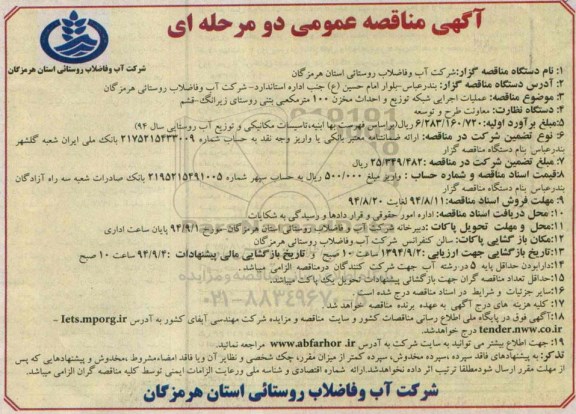 آگهی مناقصه عمومی دو مرحله ای
شرکت آب وفاضلاب روستائی استان هرمزگان
۱: نام دستگاه مناقصه گزار:شرکت آب وفاضلاب روستائی استان هرمزگان
۲: آدرس دستگاه مناقصه گزار: بندرعباس-بلوار امام حسین (ع) جنب اداره استاندارد-شرکت آب وفاضلاب روستائی هرمزگان
۳: موضوع مناقصه: عملیات اجرایی شبکه توزیع و احداث مخزن ۱۰۰ مترمکعبی بتنی روستای زیرانگ-قشم
۴: دستگاه نظارت: معاونت طرح و توسعه
۵:مبلغ برآورد اولیه: ۶/۲۸۳/۱۶۰/۷۲۰ ریال(براساس فهرست بها ابنیه،تاسیسات مکانیکی و توزیع آب روستایی سال ۹۴)
۶: نوع تضمین شرکت در مناقصه: ارائه ضمانتنامه معتبر بانکی یا واریز وجه نقد به حساب شماره ۲۱۷۵۲۱۵۴۳۳۰۰۹ بانک ملی ایران شعبه گلشهر
بندرعباس بنام دستگاه مناقصه گزار
۷: مبلغ تضمین شرکت در مناقصه: ۲۵/۳۴۹/۴۸۲ ریال
۸:قیمت اسناد مناقصه و شماره حساب : واریز مبلغ ۵۰۰/۰۰۰ ریال به حساب سپهر شماره ۲۱۹۵۲۱۵۴۹۱۰۰۵ بانک صادرات شعبه سه راه آزادگان
بندرعباس بنام دستگاه مناقصه گزار
۹: مهلت فروش اسناد مناقصه: ۹۴/۸/۱۱ لغایت ۹۴/۸/۲۰
۱۰: محل دریافت اسناد مناقصه: اداره امور حقوقی و قرار دادها و رسیدگی به شکایات
۱۱:محل و مهلت تحویل پاکات :دبیرخانه شرکت آب و فاضلاب روستائی استان هرمزگان-مورخ ۹۴/۹/۱ پایان ساعت اداری
۱۲:مکان بازگشایی پاکات: سالن کنفرانس شرکت آب وفاضلاب روستائی هرمزگان
۱۳:تاریخ بازگشایی جهت ارزیابی :۱۳۹۴/۹/۲ ساعت ۱۰ صبح و تاریخ بازگشایی مالی پیشنهادات :۹۴/۹/۴ ساعت ۱۰ صبح
۱۴:دارابودن حداقل پایه ۵ در رشته آب جهت شرکت کنندگان در مناقصه الزامی میباشد.
۱۵:حداقل تعداد مناقصه گران جهت بازگشائی پیشنهادات تحویل یک پاکت میباشد.
۱۶:سایر جزئیات و شرایط در اسناد مناقصه درج شده است.
۱۷: کلیه هزینه های درج آگهی به عهده برنده مناقصه خواهد شد.
۱۸:آگهی فوق در پایگاه ملی اطلاع رسانی مناقصات کشور و سایت مناقصه و مزایده شرکت مهندسی آبفای کشور به آدرس Iets.mporg.ir -
tender.nww.co.ir درج خواهدشد.
۱۹: جهت اطلاع بیشتر می توانید به سایت شرکت به آدرس www.abfarhor .ir مراجعه نمائید.
تذکر: به پیشنهادهای فاقد سپرده ،سپرده مخدوش، سپرده کمتر از میزان مقرر، چک شخصی و نظایر آن ویا فاقد امضاء،مشروط ،مخدوش و پیشنهادهایی که پس
از مهلت مقرر ارسال شودمطلقا ترتیب اثر داده نخواهدشد.ارائه شماره اقتصادی و شناسه ملی ورعایت الزامات ایمنی توسط کلیه مناقصه گران الزامی میباشد.
شرکت آب وفاضلاب روستائی استان هرمزگان